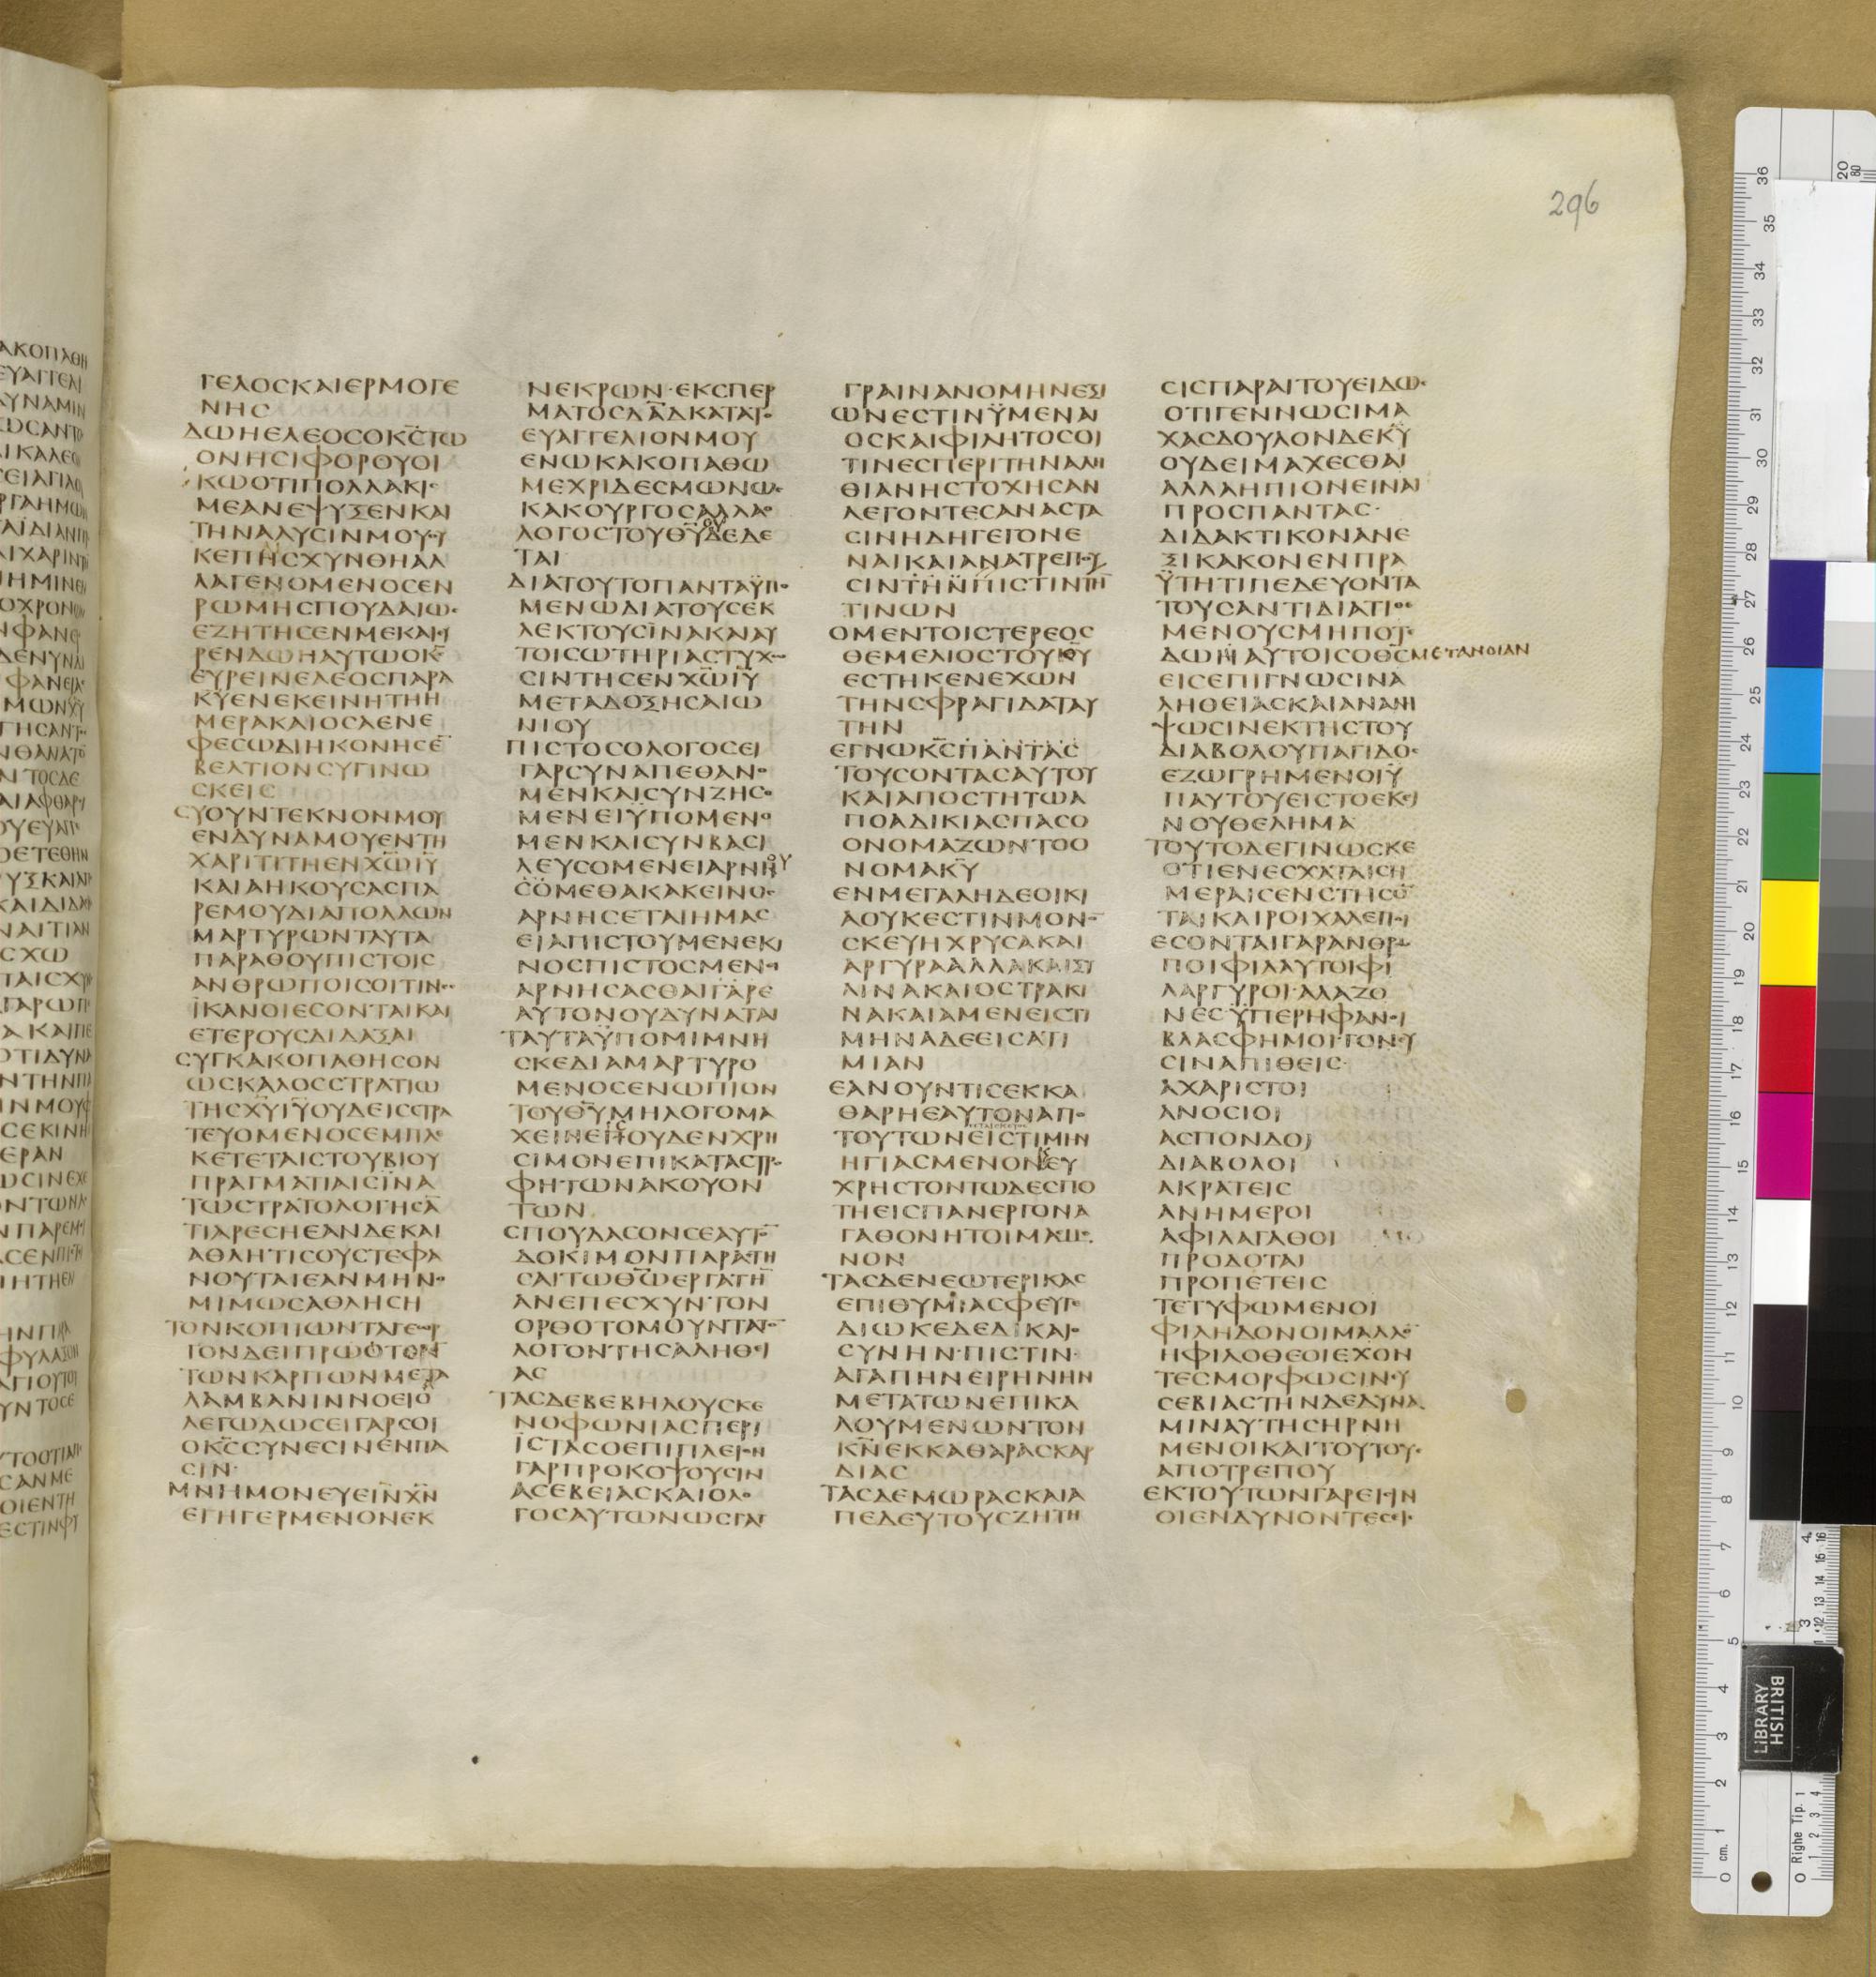 296
ΓΕΛΟϹΚΑΙΕΡΜΟΓΕ
ΝΗϹ
ΔΩΗΕΛΕΟϹΟΚ̅Ϲ̅ΤΩ
ΟΝΗϹΙΦΟΡΟΥΟΙ
ΚΩΟΤΙΠΟΛΛΑΚΙϹ
ΜΕΑΝΕΨΥΞΕΝΚΑΙ
ΤΗΝΑΛΥϹΙΝΜΟΥΟΥ
ΚΕΠΗϹΧΥΝΘΗΑΛ
ΛΑΓΕΝΟΜΕΝΟϹΕΝ
ΡΩΜΗϹΠΟΥΔΑΙΩϹ
ΕΖΗΤΗϹΕΝΜΕΚΑΙΕΥ
ΡΕΝΔΩΗΑΥΤΩΟΚ̅Ϲ̅
ΕΥΡΕΙΝΕΛΕΟϹΠΑΡΑ
Κ̅Υ̅ΕΝΕΚΕΙΝΗΤΗΗ
ΜΕΡΑΚΑΙΟϹΑΕΝΕ
ΦΕϹΩΔΙΗΚΟΝΗϹΕ̅
ΒΕΛΤΙΟΝϹΥΓΙΝΩ
ϹΚΕΙϹ
ϹΥΟΥΝΤΕΚΝΟΝΜΟΥ
ΕΝΔΥΝΑΜΟΥΕΝΤΗ
ΧΑΡΙΤΙΤΗΕΝΧ̅Ω̅Ι̅Υ̅
ΚΑΙΑΗΚΟΥϹΑϹΠΑ
ΡΕΜΟΥΔΙΑΠΟΛΛΩΝ
ΜΑΡΤΥΡΩΝΤΑΥΤΑ
ΠΑΡΑΘΟΥΠΙϹΤΟΙϹ
ΑΝΘΡΩΠΟΙϹΟΙΤΙΝΕϹ
ΪΚΑΝΟΙΕϹΟΝΤΑΙΚΑΙ
ΕΤΕΡΟΥϹΔΙΔΑΞΑΙ
ϹΥΓΚΑΚΟΠΑΘΗϹΟΝ
ΩϹΚΑΛΟϹϹΤΡΑΤΙΩ
ΤΗϹΧ̅Υ̅Ι̅Υ̅ΟΥΔΕΙϹϹΤΡΑ
ΤΕΥΟΜΕΝΟϹΕΜΠΛΕ
ΚΕΤΕΤΑΙϹΤΟΥΒΙΟΥ
ΠΡΑΓΜΑΤΙΑΙϹΪΝΑ
ΤΩϹΤΡΑΤΟΛΟΓΗϹΑ̅
ΤΙΑΡΕϹΗΕΑΝΔΕΚΑΙ
ΑΘΛΗΤΙϹΟΥϹΤΕΦΑ
ΝΟΥΤΑΙΕΑΝΜΗΝΟ
ΜΙΜΩϹΑΘΛΗϹΗ
ΤΟΝΚΟΠΙΩΝΤΑΓΕΩΡ
ΓΟΝΔΕΙΠΡΩΤΟΝ
ΤΩΝΚΑΡΠΩΝΜΕΤΑ
ΛΑΜΒΑΝΙΝΝΟΕΙΟ
ΛΕΓΩΔΩϹΕΙΓΑΡϹΟΙ
ΟΚ̅Ϲ̅ϹΥΝΕϹΙΝΕΝΠΑ
ϹΙΝ
ΜΝΗΜΟΝΕΥΕΙ̅Ν̅Χ̅Ν̅
ΕΓΗΓΕΡΜΕΝΟΝΕΚ
ΝΕΚΡΩΝ·ΕΚϹΠΕΡ
ΜΑΤΟϹΔ̅Α̅Δ̅ΚΑΤΑΤΟ
ΕΥΑΓΓΕΛΙΟΝΜΟΥ
ΕΝΩΚΑΚΟΠΑΘΩ
ΜΕΧΡΙΔΕϹΜΩΝΩϹ
ΚΑΚΟΥΡΓΟϹΑΛΛΑΟ
ΛΟΓΟϹΤΟΥΘ̅Υ̅ΟΥΔΕΔΕ
ΤΑΙ
ΔΙΑΤΟΥΤΟΠΑΝΤΑΫΠΟ
ΜΕΝΩΔΙΑΤΟΥϹΕΚ
ΛΕΚΤΟΥϹΪΝΑΚΑΙΑΥ
ΤΟΙϹΩΤΗΡΙΑϹΤΥΧΩ
ϹΙΝΤΗϹΕΝΧ̅Ω̅Ι̅Υ̅
ΜΕΤΑΔΟΞΗϹΑΙΩ
ΝΙΟΥ
ΠΙϹΤΟϹΟΛΟΓΟϹΕΙ
ΓΑΡϹΥΝΑΠΕΘΑΝΟ
ΜΕΝΚΑΙϹΥΝΖΗϹΟ
ΜΕΝΕΙΫΠΟΜΕΝΟ
ΜΕΝΚΑΙϹΥΝΒΑϹΙ
ΛΕΥϹΟΜΕΝΕΙΑΡΝΗΟΥ
ϹΟΜΕΘΑΚΑΚΕΙΝΟϹ
ΑΡΝΗϹΕΤΑΙΗΜΑϹ
ΕΙΑΠΙϹΤΟΥΜΕΝΕΚΙ
ΝΟϹΠΙϹΤΟϹΜΕΝΕΙ
ΑΡΝΗϹΑϹΘΑΙΓΑΡΕ
ΑΥΤΟΝΟΥΔΥΝΑΤΑΙ
ΤΑΥΤΑΫΠΟΜΙΜΝΗ
ϹΚΕΔΙΑΜΑΡΤΥΡΟ
ΜΕΝΟϹΕΝΩΠΙΟΝ
ΤΟΥΘ̅Υ̅ΜΗΛΟΓΟΜΑ
ΧΕΙΝΕΙϹΟΥΔΕΝΧΡΗ
ϹΙΜΟΝΕΠΙΚΑΤΑϹΤΡΟ
ΦΗΤΩΝΑΚΟΥΟΝ
ΤΩΝ
ϹΠΟΥΔΑϹΟΝϹΕΑΥΤΟ̅
ΔΟΚΙΜΟΝΠΑΡΑϹΤΗ
ϹΑΙΤΩΘ̅Ω̅ΕΡΓΑΤΗ̅
ΑΝΕΠΕϹΧΥΝΤΟΝ
ΟΡΘΟΤΟΜΟΥΝΤΑΤΟ̅
ΛΟΓΟΝΤΗϹΑΛΗΘΕΙ
ΑϹ
ΤΑϹΔΕΒΕΒΗΛΟΥϹΚΕ
ΝΟΦΩΝΙΑϹΠΕΡΙ
ΪϹΤΑϹΟΕΠΙΠΛΕΙΟΝ
ΓΑΡΠΡΟΚΟΨΟΥϹΙΝ
ΑϹΕΒΕΙΑϹΚΑΙΟΛΟ
ΓΟϹΑΥΤΩΝΩϹΓΑΓ
ΓΡΑΙΝΑΝΟΜΗΝΕΞΙ
ΩΝΕϹΤΙΝΫΜΕΝΑΙ
ΟϹΚΑΙΦΙΛΗΤΟϹΟΙ
ΤΙΝΕϹΠΕΡΙΤΗΝΑΛΗ
ΘΙΑΝΗϹΤΟΧΗϹΑΝ
ΛΕΓΟΝΤΕϹΑΝΑϹΤΑ
ϹΙΝΗΔΗΓΕΓΟΝΕ
ΝΑΙΚΑΙΑΝΑΤΡΕΠΟΥ
ϹΙΝΤΗΝΠΙϹΤΙΝΤΗ̅
ΤΙΝΩΝ
ΟΜΕΝΤΟΙϹΤΕΡΕΟϹ
ΘΕΜΕΛΙΟϹΤΟΥΘ̅Υ̅
ΕϹΤΗΚΕΝΕΧΩΝ
ΤΗΝϹΦΡΑΓΙΔΑΤΑΥ
ΤΗΝ
ΕΓΝΩΚ̅Ϲ̅ΠΑΝΤΑϹ
ΤΟΥϹΟΝΤΑϹΑΥΤΟΥ
ΚΑΙΑΠΟϹΤΗΤΩΑ
ΠΟΑΔΙΚΙΑϹΠΑϹΟ
ΟΝΟΜΑΖΩΝΤΟΟ
ΝΟΜΑΚ̅Υ̅
ΕΝΜΕΓΑΛΗΔΕΟΙΚΙ
ΑΟΥΚΕϹΤΙΝΜΟΝΟ̅
ϹΚΕΥΗΧΡΥϹΑΚΑΙ
ΑΡΓΥΡΑΑΛΛΑΚΑΙΞΥ
ΛΙΝΑΚΑΙΟϹΤΡΑΚΙ
ΝΑΚΑΙΑΜΕΝΕΙϹΤΙ
ΜΗΝΑΔΕΕΙϹΑΤΙ
ΜΙΑΝ
ΕΑΝΟΥΝΤΙϹΕΚΚΑ
ΘΑΡΗΕΑΥΤΟΝΑΠΟ
ΤΟΥΤΩΝΕΙϹΤΙΜΗΝ
ΗΓΙΑϹΜΕΝΟΝΕΥ
ΧΡΗϹΤΟΝΤΩΔΕϹΠΟ
ΤΗΕΙϹΠΑΝΕΡΓΟΝΑ
ΓΑΘΟΝΗΤΟΙΜΑϹΜΕ
ΝΟΝ
ΤΑϹΔΕΝΕΩΤΕΡΙΚΑϹ
ΕΠΙΘΥΜΙΑϹΦΕΥΓΕ
ΔΙΩΚΕΔΕΔΙΚΑΙΟ
ϹΥΝΗΝ·ΠΙϹΤΙΝ·
ΑΓΑΠΗΝΕΙΡΗΝΗΝ
ΜΕΤΑΤΩΝΕΠΙΚΑ
ΛΟΥΜΕΝΩΝΤΟΝ
Κ̅Ν̅ΕΚΚΑΘΑΡΑϹΚΑΡ
ΔΙΑϹ
ΤΑϹΔΕΜΩΡΑϹΚΑΙΑ
ΠΕΔΕΥΤΟΥϹΖΗΤΗ
ϹΙϹΠΑΡΑΙΤΟΥΕΙΔΩϹ
ΟΤΙΓΕΝΝΩϹΙΜΑ
ΧΑϹΔΟΥΛΟΝΔΕΚ̅Υ̅
ΟΥΔΕΙΜΑΧΕϹΘΑΙ
ΑΛΛΑΗΠΙΟΝΕΙΝΑΙ
ΠΡΟϹΠΑΝΤΑϹ·
ΔΙΔΑΚΤΙΚΟΝΑΝΕ
ΞΙΚΑΚΟΝΕΝΠΡΑ
ΫΤΗΤΙΠΕΔΕΥΟΝΤΑ
ΤΟΥϹΑΝΤΙΔΙΑΤΙΘΕ
ΜΕΝΟΥϹΜΗΠΟΤΕ
ΔΩΗΑΥΤΟΙϹΟΘ̅Ϲ̅ΜΕΤΑΝΟΙΑΝ
ΕΙϹΕΠΙΓΝΩϹΙΝΑ
ΛΗΘΕΙΑϹΚΑΙΑΝΑΝΗ
ΨΩϹΙΝΕΚΤΗϹΤΟΥ
ΔΙΑΒΟΛΟΥΠΑΓΙΔΟϹ
ΕΖΩΓΡΗΜΕΝΟΙΫ
ΠΑΥΤΟΥΕΙϹΤΟΕΚΕΙ
ΝΟΥΘΕΛΗΜΑ
ΤΟΥΤΟΔΕΓΙΝΩϹΚΕ
ΟΤΙΕΝΕϹΧΑΤΑΙϹΗ
ΜΕΡΑΙϹΕΝϹΤΗϹΟ̅
ΤΑΙΚΑΙΡΟΙΧΑΛΕΠΟΙ
ΕϹΟΝΤΑΙΓΑΡΑΝΘΡΩ
ΠΟΙΦΙΛΑΥΤΟΙΦΙ
ΛΑΡΓΥΡΟΙ·ΑΛΑΖΟ
ΝΕϹΫΠΕΡΗΦΑΝΟΙ
ΒΛΑϹΦΗΜΟΙΓΟΝΕΥ
ϹΙΝΑΠΙΘΕΙϹ·
ΑΧΑΡΙϹΤΟΙ
ΑΝΟϹΙΟΙ
ΑϹΠΟΝΔΟΙ
ΔΙΑΒΟΛΟΙ
ΑΚΡΑΤΕΙϹ
ΑΝΗΜΕΡΟΙ
ΑΦΙΛΑΓΑΘΟΙ
ΠΡΟΔΟΤΑΙ
ΠΡΟΠΕΤΕΙϹ
ΤΕΤΥΦΩΜΕΝΟΙ
ΦΙΛΗΔΟΝΟΙΜΑΛΛΟ̅
ΗΦΙΛΟΘΕΟΙΕΧΟΝ
ΤΕϹΜΟΡΦΩϹΙΝΕΥ
ϹΕΒΙΑϹΤΗΝΔΕΔΥΝΑ
ΜΙΝΑΥΤΗϹΗΡΝΗ
ΜΕΝΟΙΚΑΙΤΟΥΤΟΥϹ
ΑΠΟΤΡΕΠΟΥ
ΕΚΤΟΥΤΩΝΓΑΡΕΙϹΙΝ
ΟΙΕΝΔΥΝΟΝΤΕϹΕΙϹ
BRITISH
LIBRARY